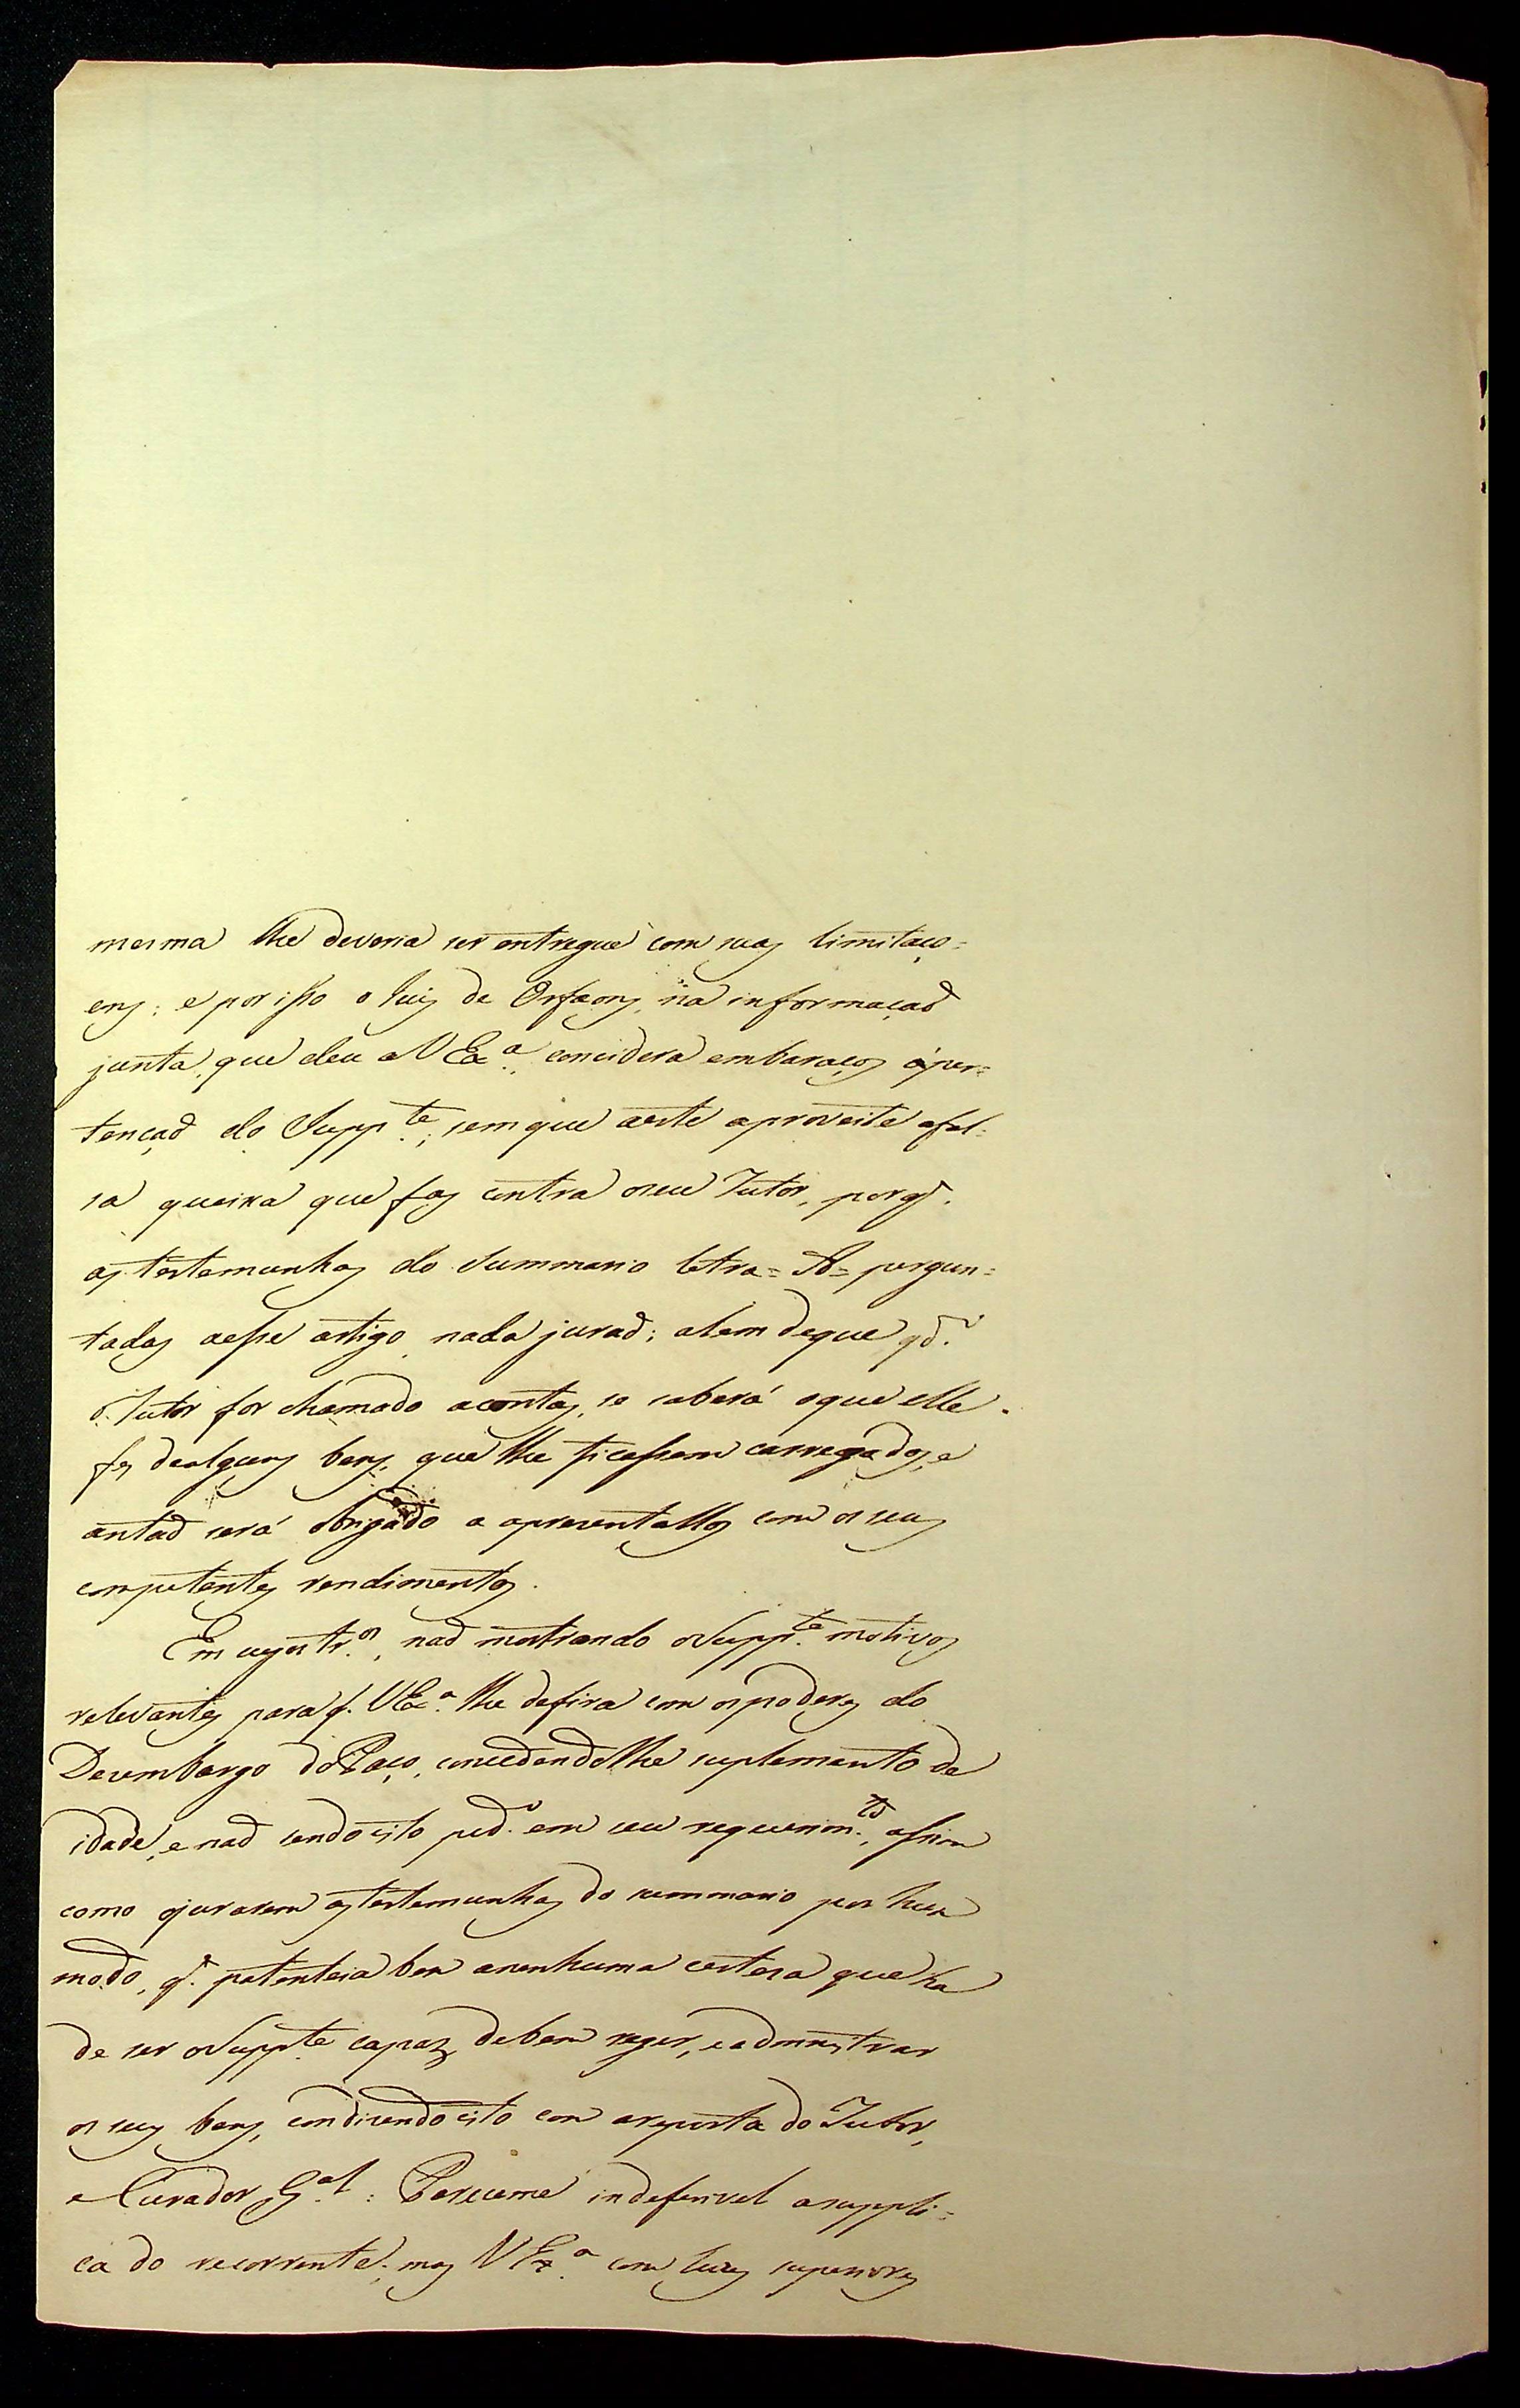 mesma lhe deveria ser entregue com suas limitaço=
ens; e por isso o Juis de Orfaons, na informaçaõ
junta, que deu a V Exª. considera embaraços á per=
tençaõ do Supp.te; sem que a este aproveite a fal=
sa queixa que fas contra o seu Tutor, porq̃.
as testemunhas do Summario letra = A = pergun=
tadas a esse artigo nada juraõ; alem de que qd.º
o Tutor for chamado a contas, se saberá o que elle
fes de alguns bens, que lhe ficassem carregados, e
entaõ será obrigado a apresentallos com os seus
competentes rendimentos.
Em cujos tr.os, naõ mostrando o Supp.te motivos
relevantes para q̃. V Exª. lhe defira com os poderes do
Desembargo do Paço, concedendolhe suplemento de
idade, e naõ sendo isto ped.º em seu requerim.to, assim
como o jurarem as testemunhas do summario por hum
modo, q̃. patenteia bem a nenhuma certesa que ha
de ser o Supp.te capaz de bem reger, e admnistrar
os seus bens, condisendo isto com a reposta do Tutor,
e Curador G.al: Pareceme indeferivel a suppli=
ca do recorrente; mas V Exª. com luzes superiores